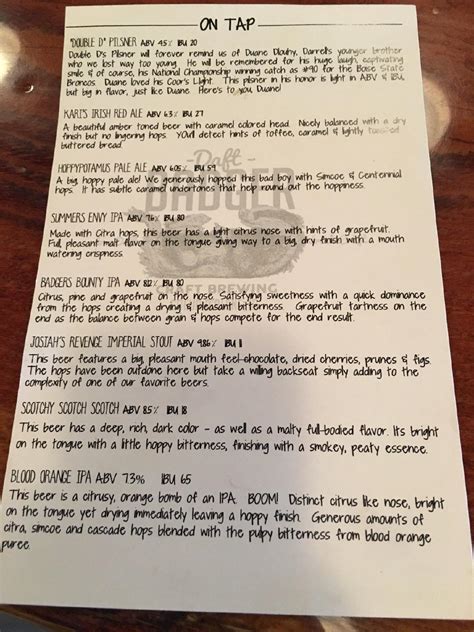 ON TAP
"DOUBLE D" PILSNER ABV 4.5% IBU 20
Double D's Pilsner will forever remind us of Duane Dlouhy, Darrell's younger brother
who we lost way too young. He will be remembered for his huge laugh, captivating
smile & of course, his National Championship winning catch as #90 for the Boise State
Broncos. Duane loved his Coor's Light. This pilsner in his honor is light in ABV & IBU,
but big in flavor, just like Duane. Here's to you, Duane!
KARI'S IRISH RED ALE ABV 6.3% IBU 27
A beautiful amber toned beer with caramel colored head. Nicely balanced with a dry
finish but no lingering hops. You'll detect hints of toffee, caramel & lightly toasted
buttered bread.
HOPPYPOTAMUS PALE ALE ABV 6.05% IBU 54
A big, hoppy pale ale! We generously hopped this bad boy with Simcoe & Centennial
hops. It has subtle caramel undertones that help round out the hoppiness.
Daft
BADGER
CRAFT BREWING
SUMMERS ENVY IPA ABV 7.6% IBU 80
Made with Citra hops, this beer has a light citrus nose with hints of grapefruit.
Full, pleasant malt flavor on the tongue giving way to a big, dry finish with a mouth
watering crispness.
BADGERS BOUNTY IPA ABV 8.12% IBU 80
Citrus, pine and grapefruit on the nose. Satisfying sweetness with a quick dominance
from the hops creating a drying & pleasant bitterness. Grapefruit tartness on the
end as the balance between grain & hops compete for the end result.
JOSIAH'S REVENGE IMPERIAL STOUT ABV 9.86% IBU 11
This beer features a big, pleasant mouth feel-chocolate, dried cherries, prunes & figs.
The hops have been outdone here but take a willing backseat simply adding to the
complexity of one of our favorite beers.
SCOTCHY SCOTCH SCOTCH ABV 8.5% IBU 18
This beer has a deep, rich, dark color - as well as a malty full-bodied flavor. Its bright
on the tongue with a little hoppy bitterness, finishing with a smokey, peaty essence.
BLOOD ORANGE IPA ABV 7.3% IBU 65
This beer is a citrusy, orange bomb of an IPA. BOOM! Distinct citrus like nose, bright
on the tongue yet drying immediately leaving a hoppy finish. Generous amounts of
citra, simcoe and cascade hops blended with the pulpy bitterness from blood orange
puree.